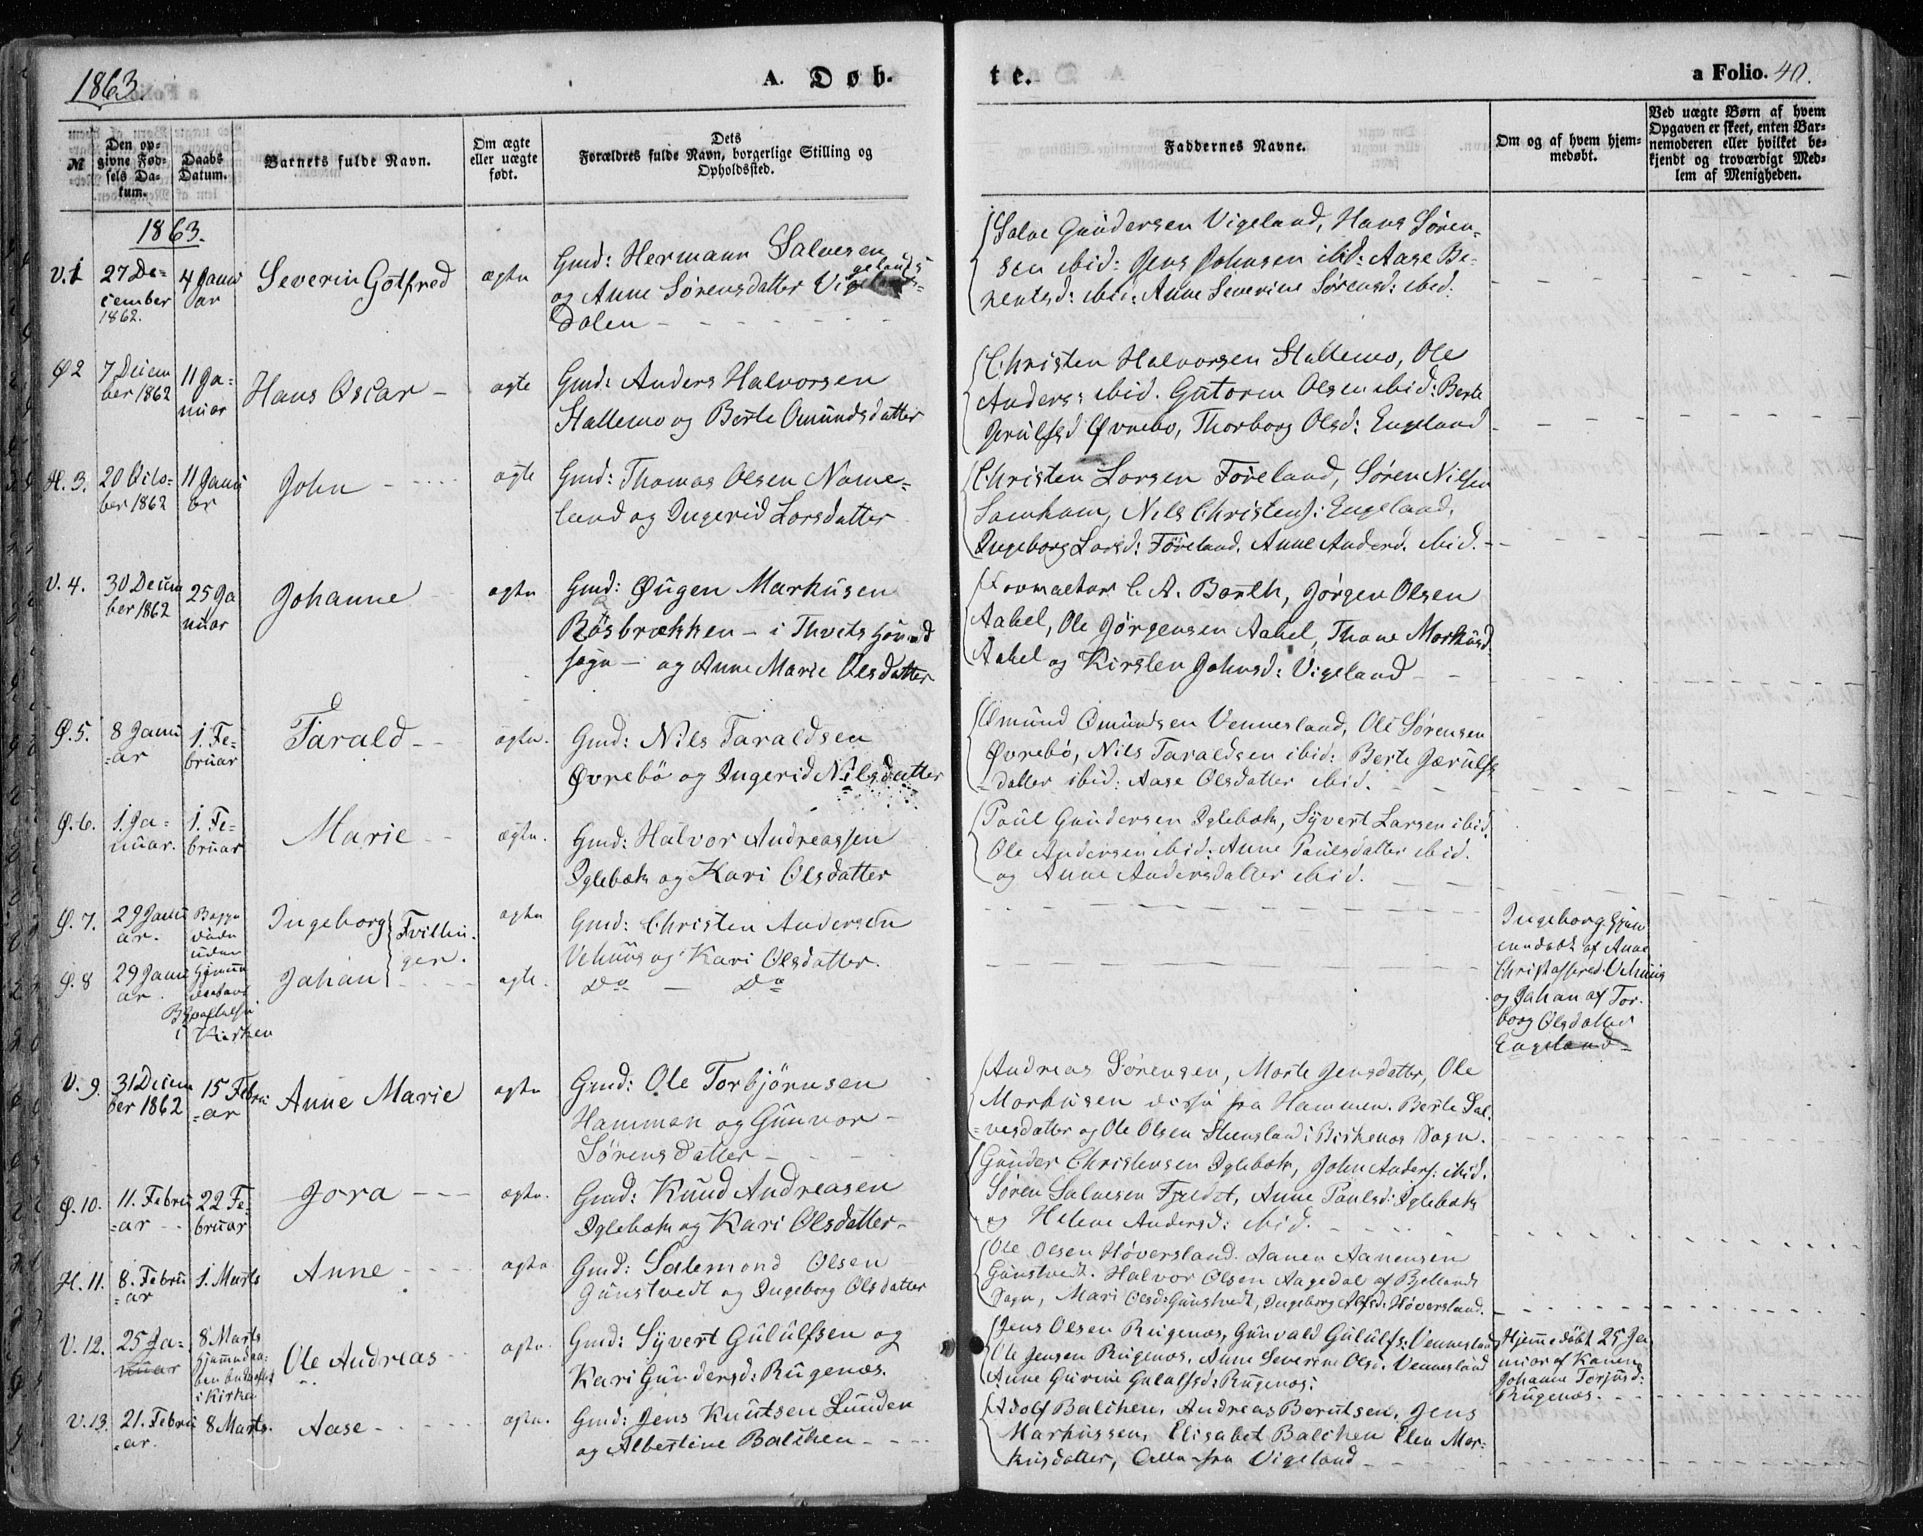 1863.
A. Døb-
te.
a Folio. 40.
№
Den op-
givne Fød-
sels Da-
tum.
Daabs
Datum.
Barnets fulde Navn.
Om ægte
eller uægte
født.
Dets
Forældres fulde Navn, borgerlige Stilling og
Opholdssted.
Faddernes Navne.
Om og af hvem hjem-
medøbt.
Ved uægte Børn af hvem
Opgaven er skeet, enten Bar-
nemoderen eller hvilket be-
kjendt og troværdigt Med-
lem af Menigheden.
1863.
V. 1
27 De-
cember
1862.
4 Janu
ar
Severin Gotfred
ægte
Gmd: Hermann Salvesen
og Anne Sørensdatter Vigelands-
dalen
Salve Gundersen Vigeland, Hans Søren-
sen ibid: Jens Johnsen ibid: Aase Be-
rentsd: ibid: Anne Severine Sørensd: ibid.
Ø 2
7 Decem
ber 1862
11 Ja-
nuar
Hans Oscar
ægte
Gmd: Anders Halvorsen
Stallemo og Berte Omundsdatter
Christen Halvorsen Stallemo, Ole
Anders: ibid. Gutorm Olsen ibid: Berte
Jerulfsd Øvrebø, Thorborg Olsd: Engeland
H. 3.
20 Octo-
ber 1862
11 Janu
ar
John
ægte
Gmd: Thomas Olsen Nome-
land og Ingerid Larsdatter
Christen Larsen Føreland, Søren Nilsen
Samkom, Nils Christens: Engeland,
Ingeborg Larsd: Føreland, Anne Andersd. ibid.
V. 4.
30 Decem
ber 1862
25 Ja
nuar
Johanne
ægte
Gmd: Øugen Markusen
Røsbrækken - i Thveits
sogn - og Anne Marie Olsdatter
C. A. Barth, Jørgen Olsen
Aabel, Ole Jørgensen Aabel, Thone Markusd
Aabel og Kirsten Johnsd: Vigeland
Ø. 5.
8 Janu
-ar
1. Fe-
bruar
Tarald
ægte.
Gmd: Nils Taraldsen
Øvrebø og Ingerid Nilsdatter
Omund Omundsen Vennesland, Ole Sørensen
Øvrebø, Nils Taraldsen ibid: Berte Jærulfs
-datter ibid: Aase Olsdatter ibid.
Ø. 6.
1. Ja-
nuar.
1. Fe-
bruar
Marie
ægte.
Gmd: Halvor Andreassen
Iglebæk og Kari Olsdatter
Paul Gundersen Iglebæk, Syvert Larsen ibid.
Ole Andersen ibid: Anne Paulsdatter ibid.
og Anne Andersdatter ibid.
Ø. 7.
29 Janu
ar.
Begge
døde
uden
Ingeborg
Tvillin-
ger.
ægte
Gmd: Christen Andersen
Vehuus og Kari Olsdatter.
Ingeborg hjem
medøbt af Anne
Christoffersd: Vehuus
og Johan af Tor-
borg Olsdatter
Engeland
Ø. 8
29 Janu
ar.
Hjemme
daabens
Bekræftelse
i Kirken
Johan
ægte.
Do - Do
V. 9.
31 Decem
ber 1862
15 Febru
-ar
Anne Marie
ægte
Gmd: Ole Torbjørnsen
Hammen og Gunvor
Sørensdatter
Andreas Sørensen, Marte Jensdatter, Ole
Markusen disse fra Hammen. Berte Sal-
-vesdatter og Ole Olsen Stensland i Birkenæs Sogn.
Ø. 10.
11. Febru
-ar
22 Fe-
bruar
Jora
ægte.
Gmd: Knud Andreasen
Iglebæk og Kari Olsdatter
Gunder Christensen Iglebæk, John Anders. ibid.
Søren Salvesen Fjeldet, Anne Paulsd: Iglebæk
og Helene Andersd: ibid.
H. 11.
8. Febru
-ar
1. Marts
Anne
ægte
Gmd: Salemond Olsen
Gunstvedt og Ingeborg Olsdatter
Ole Olsen Høversland. Aanen Aanensen
Gunstvedt. Halvor Olsen Aagedal af Bjellands
Sogn, Mari Olsd: Gunstvedt, Ingeborg Alfsd: Høversland.
V. 12.
25 Ja-
nuar
8 Marts
hjemmedaa-
ben bekræftet
i Kirken
Ole Andreas
ægte.
Gmd: Syvert Gululfsen og
Kari Gundersd: Rugenæs.
Jens Olsen Rugenæs, Gunvald Gululfs: Vennesland
Ole Jensen Rugenæs. Anne Severine Olsd. Vennesland
Anne Gurine Gululfsd: Rugenæs:
Hjemmedøbt 25 Ja
nuar af Konen
Johanne Torjusd:
Rugenæs.
V. 13.
21. Febru
-ar.
8 Marts.
Aase
ægte.
Gmd: Jens Knutsen Lunden
og Albertine Balchen
Adolf Balchen, Andreas Berntsen, Jens
Markussen, Elisabet Balchen Elen Mar-
kusdatter, Alle fra Vigeland